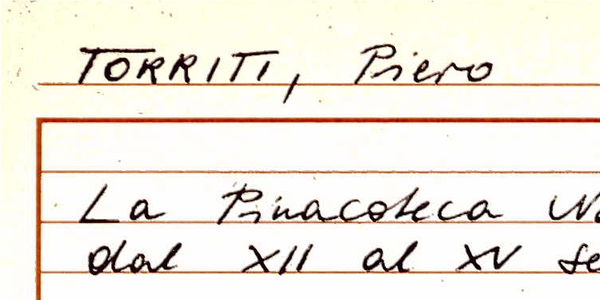 TORRITI, Piero
La Pinacoteca
dal XII al XV